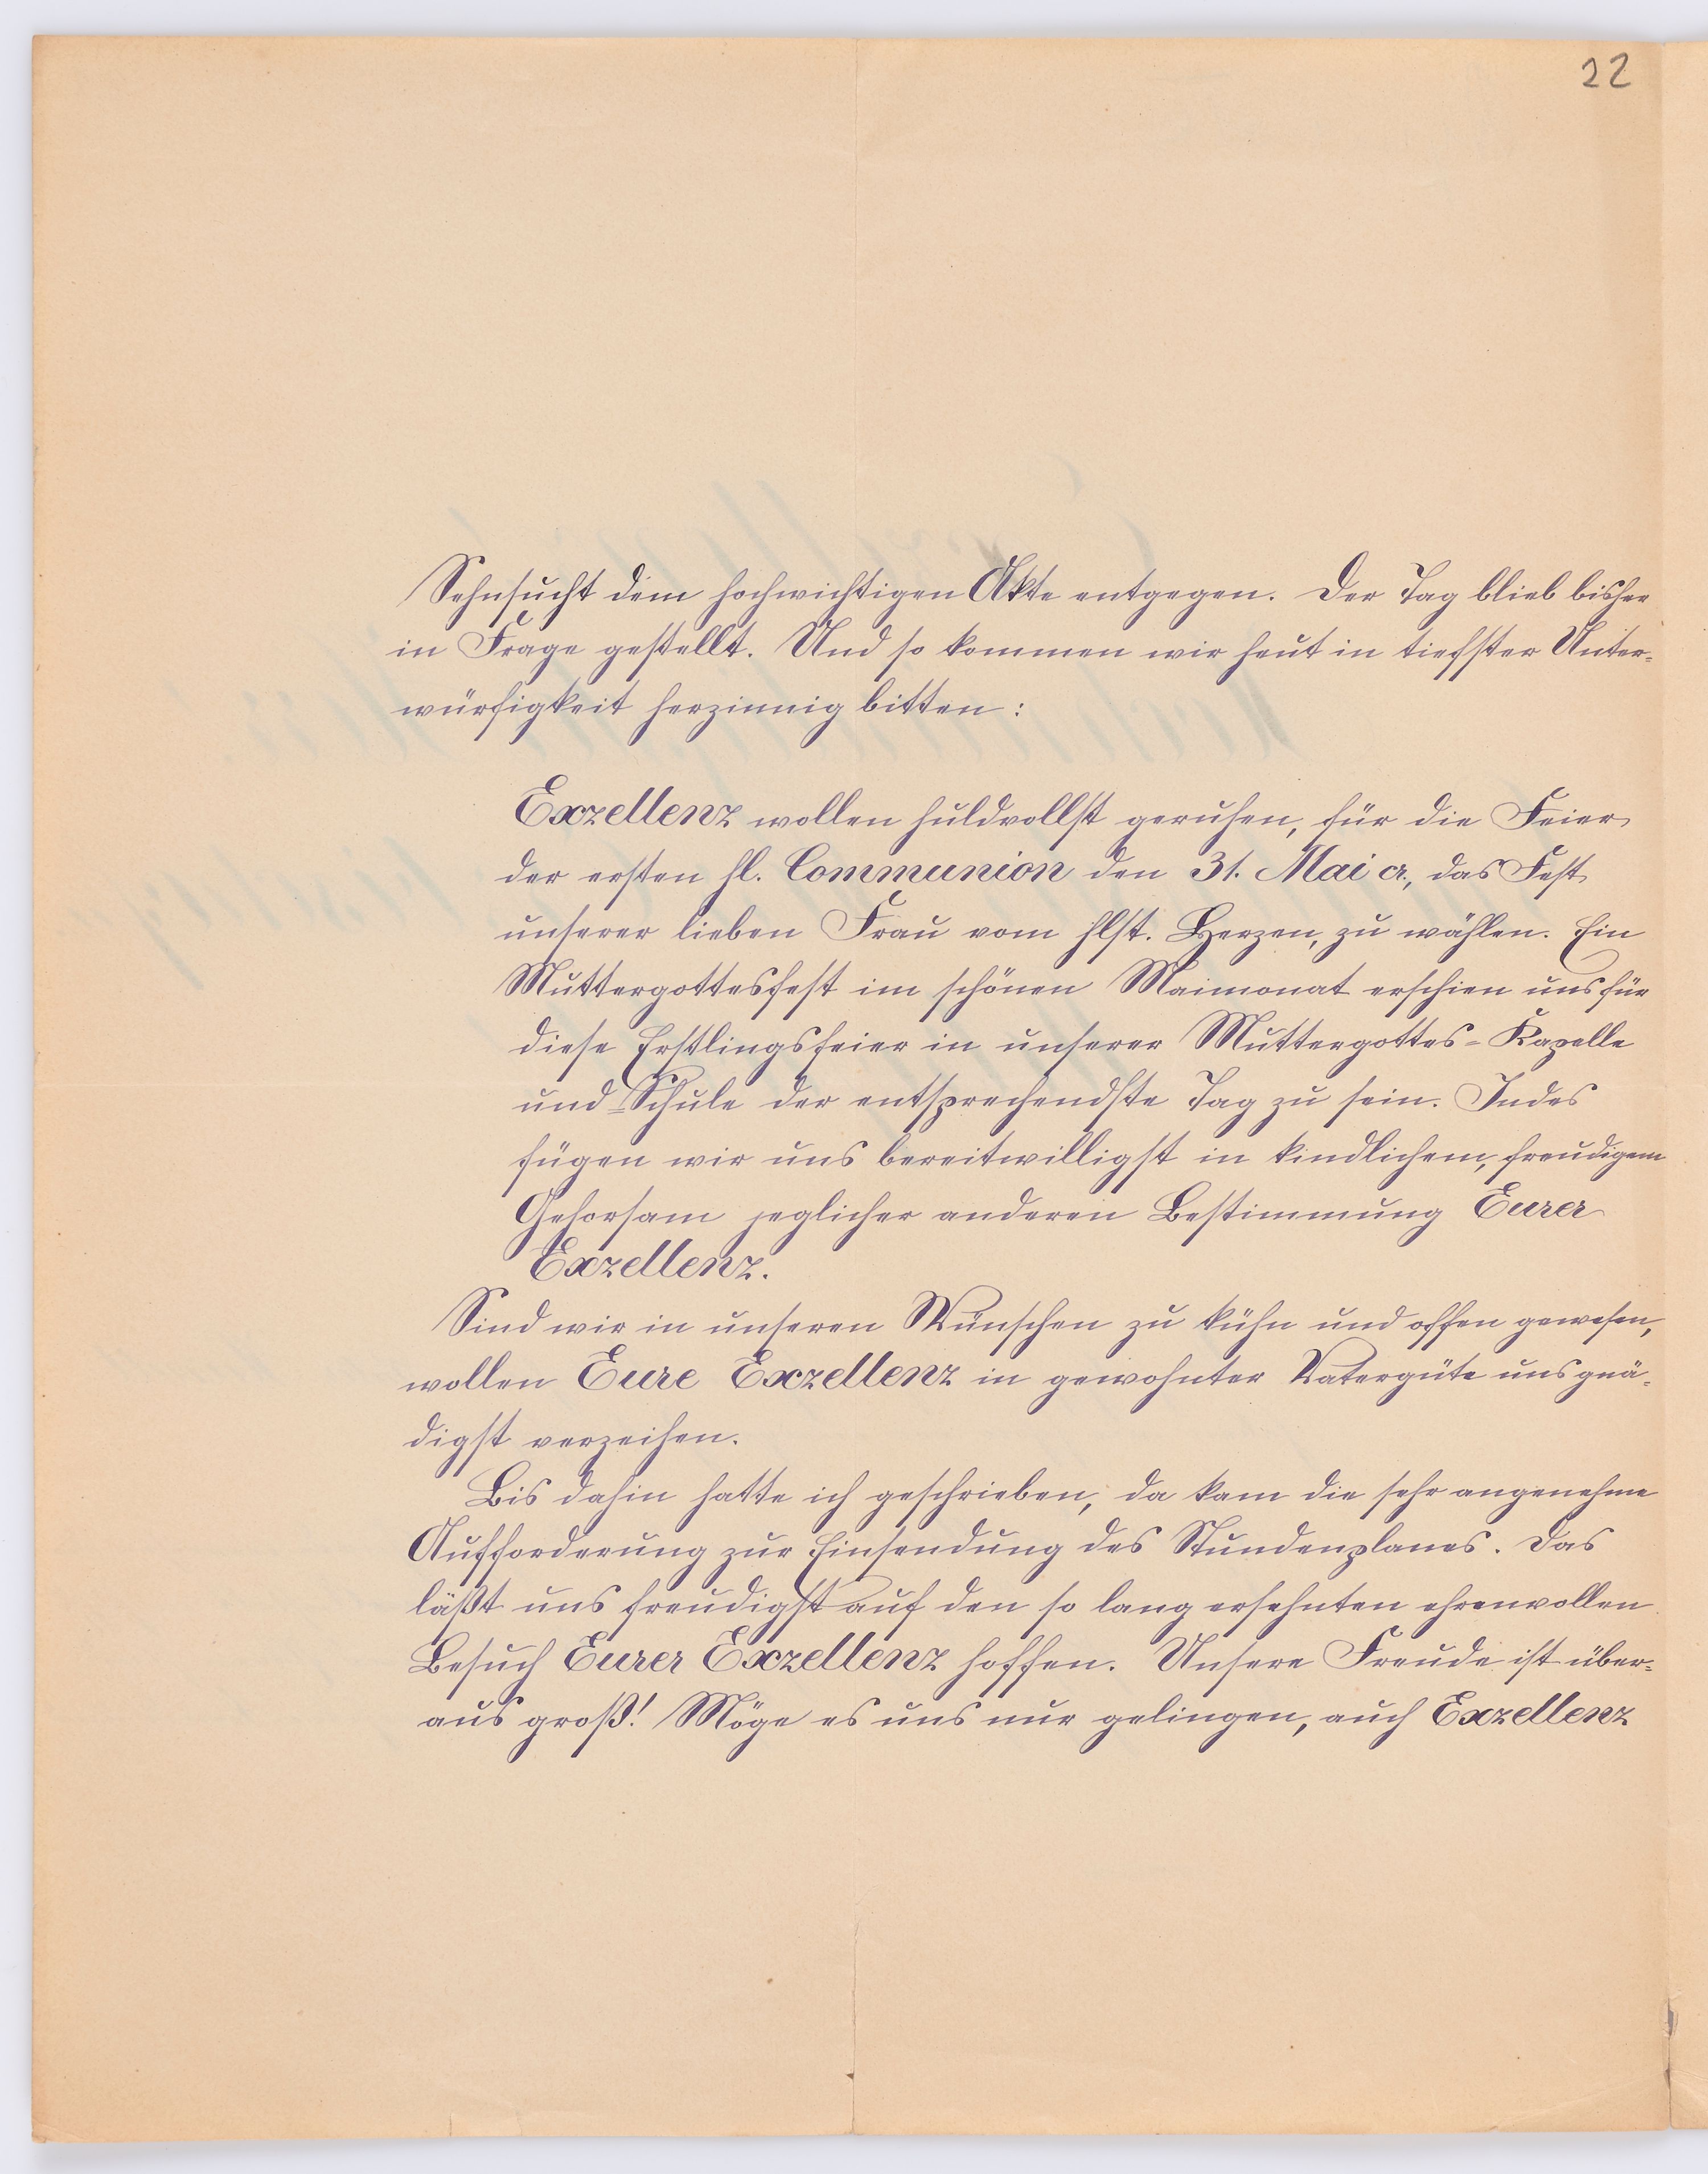 22
Sehnsucht dem hochwichtigen Akte entgegen. Der Tag blieb bisher
in Frage gestellt. Und so kommen wir heut in tiefster Unter-
würfigkeit herzinnig bitten:
Exzellenz wollen huldvollst geruhen, für die Feier
der ersten hl. Communion den 31. Mai cr., das Fest
unserer lieben Frau vom hlst. Herzen, zu wählen. Ein
Muttergottesfest im schönen Maimonat erschien uns für
diese Erstlingsfeier in unserer Muttergottes-Kapelle
und -Schule der entsprechendste Tag zu sein. Indes
fügen wir uns bereitwilligst in kindlichem, freudigem
Gehorsam jeglicher anderen Bestimmung Eurer
Exzellenz.
Sind wir in unseren Wünschen zu kühn und offen gewesen,
wollen Eure Exzellenz in gewohnter Vatergüte uns gnä-
digst verzeihen.
Bis dahin hatte ich geschrieben, da kam die sehr angenehme
Aufforderung zur Einsendung des Stundenplanes. Das
läßt uns freudigst auf den so lang ersehnten ehrenvollen
Besuch Eurer Exzellenz hoffen. Unsere Freude ist über-
aus groß! Möge es uns nur gelingen, auch Exzellenz